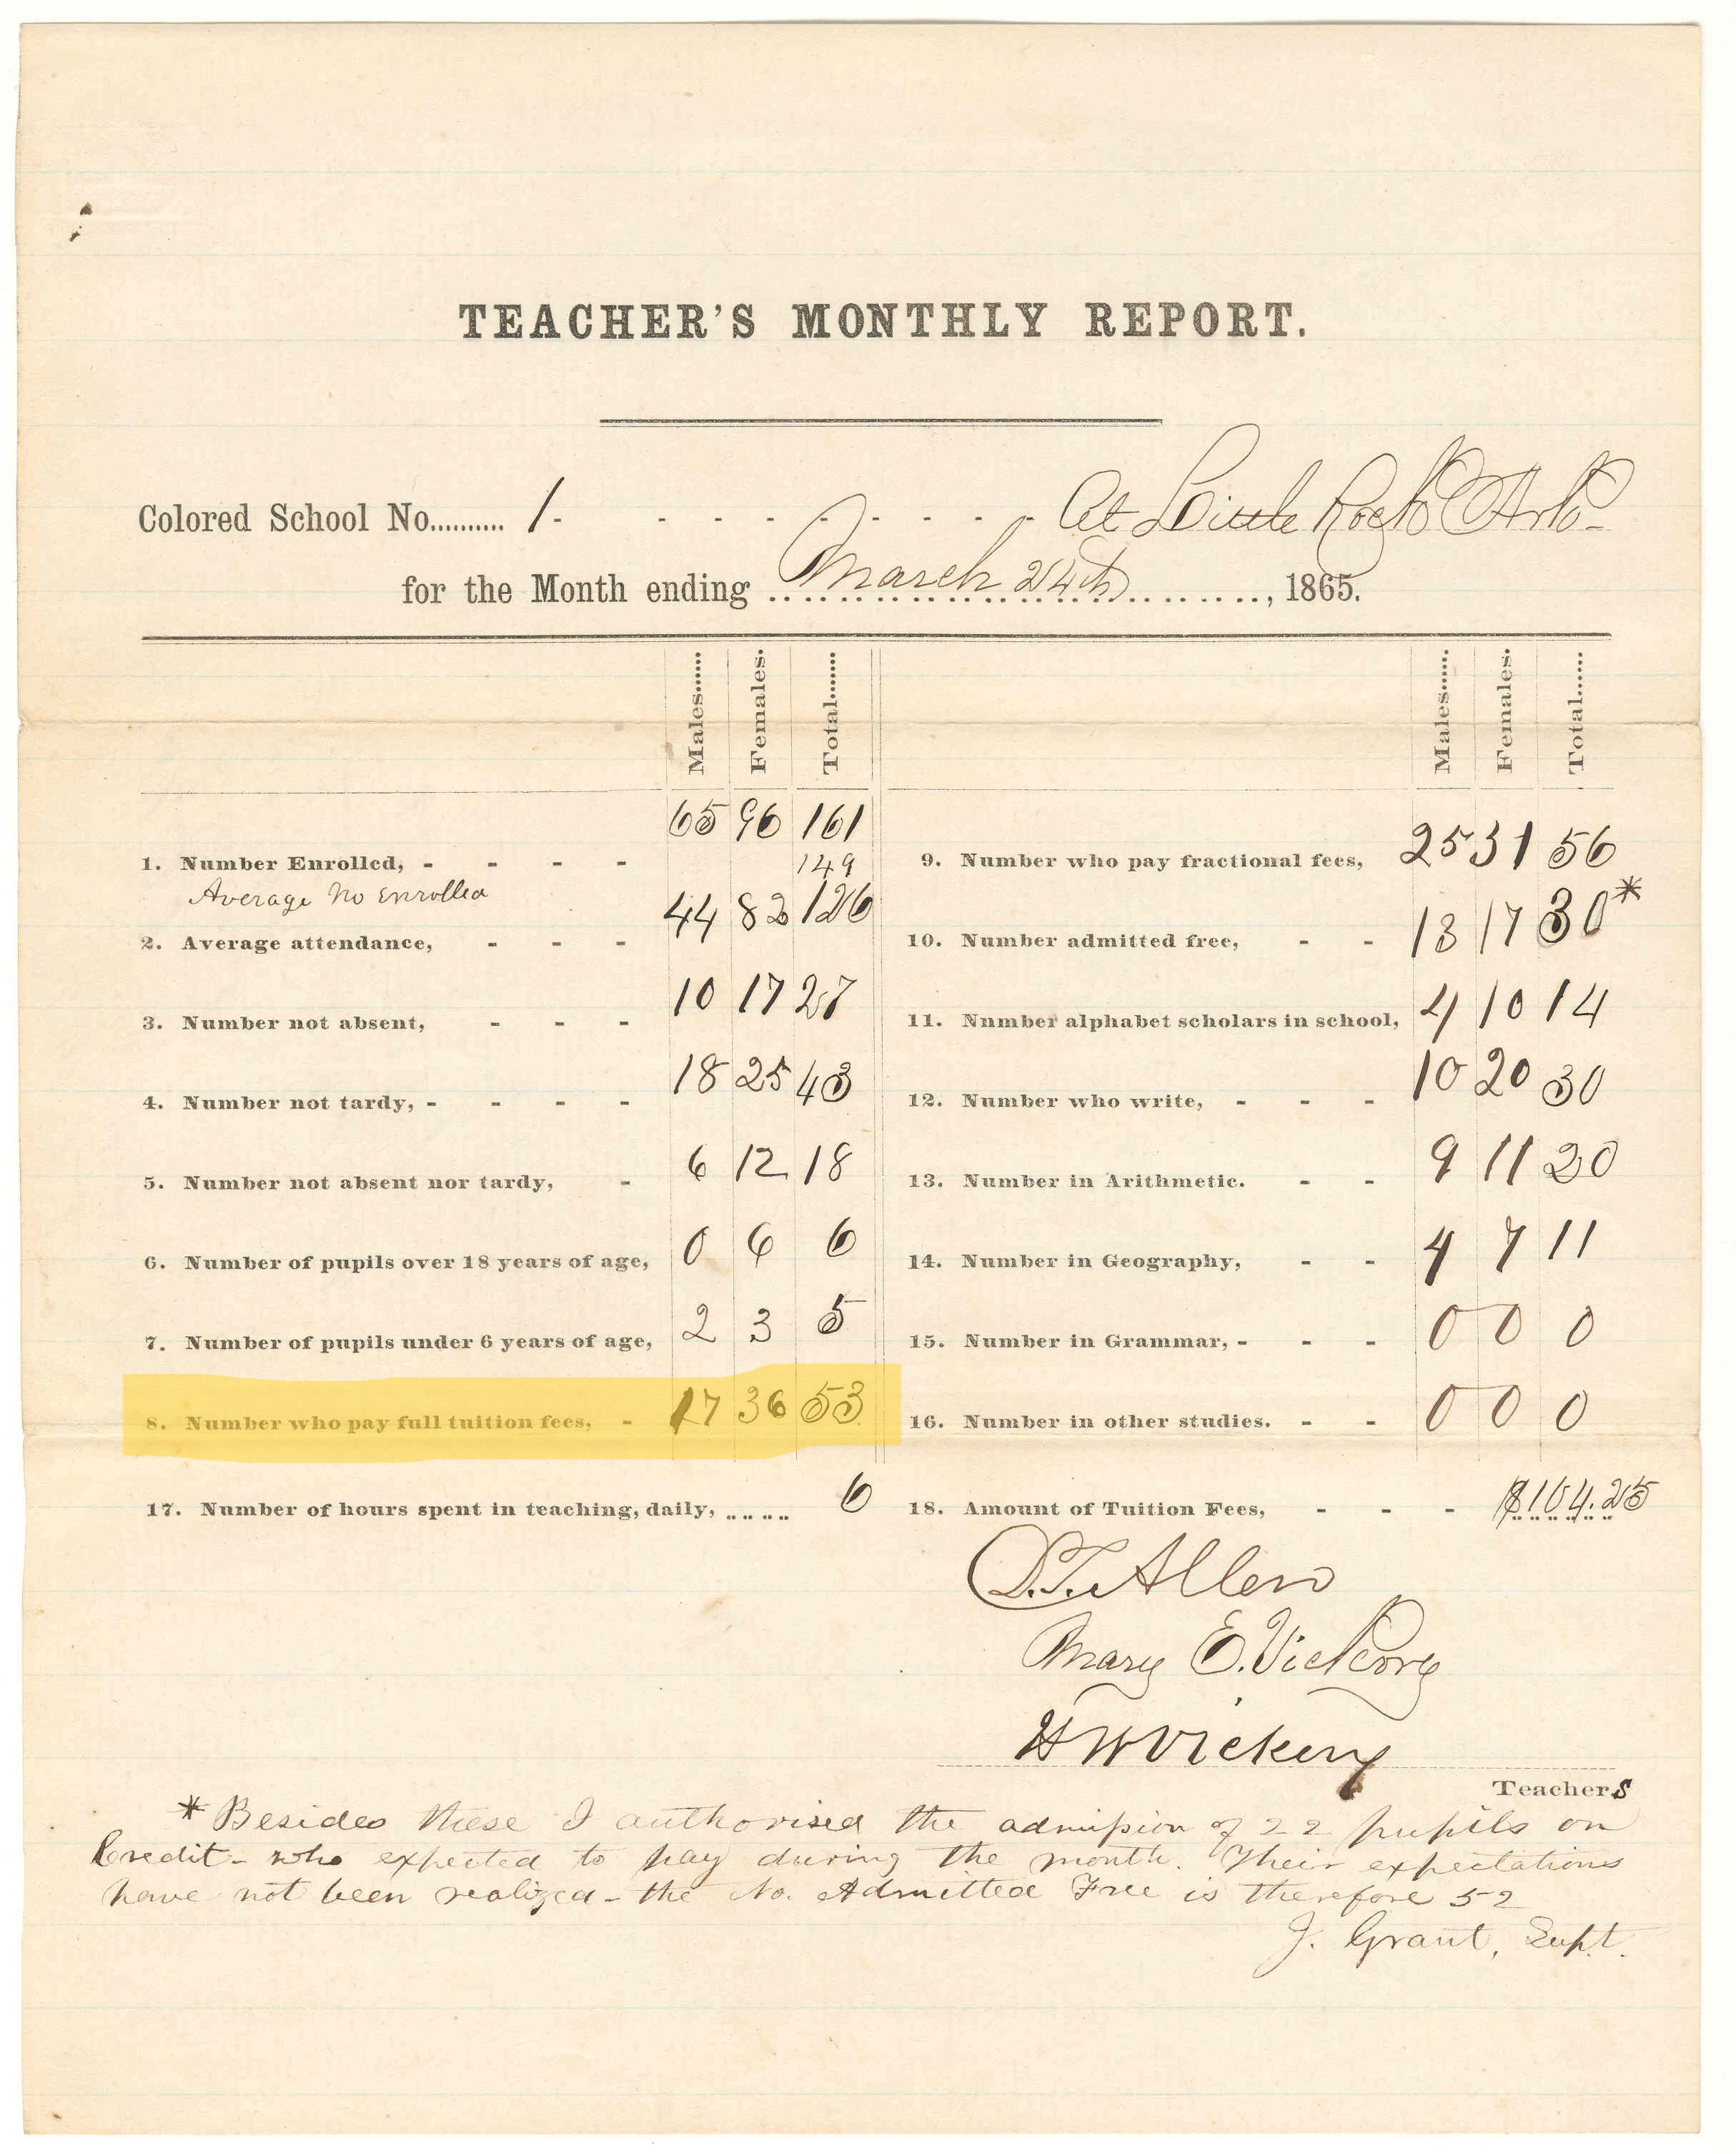 TEACHER'S MONTHLY REPORT.
Colored School No.......... 1 - - - - - - - - - At Little Rock Ark-
for the Month ending March 24th, 1865.
Males...... Females. Total....... Males...... Females. Total......
65 96 161
1. Number Enrolled, - - - -
149
Average No Enrolled
2. Average attendance, - - - 44 82 126
3. Number not absent, - - - 10 17 27
4. Number not tardy, - - - - 18 25 43
5. Number not absent nor tardy, - 6 12 18
6. Number of pupils over 18 years of age, 0 6 6
7. Number of pupils under 6 years of age, 2 3 5
8. Number who pay full tuition fees, - 17 36 53
9. Number who pay fractional fees, 25 31 56
10. Number admitted free, - - 13 17 30*
11. Number alphabet scholars in school, 4 10 14
12. Number who write, - - - 10 20 30
13. Number in Arithmetic. - - 9 11 20
14. Number in Geography, - - 4 7 11
15. Number in Grammar, - - - 0 0 0
16. Number in other studies. - - 0 0 0
17. Number of hours spent in teaching, daily, .... 6
18. Amount of Tuition Fees, - - - $104.25
D.T. Allen
Mary E. Vickery
H W Vickery
Teachers
* Besides these I authorised the admission of 22 pupils on
Credit - who expected to pay during the month. Their expectations
have not been realized - the No. Admitted Free is therefore 52
J. Grant, Supt.